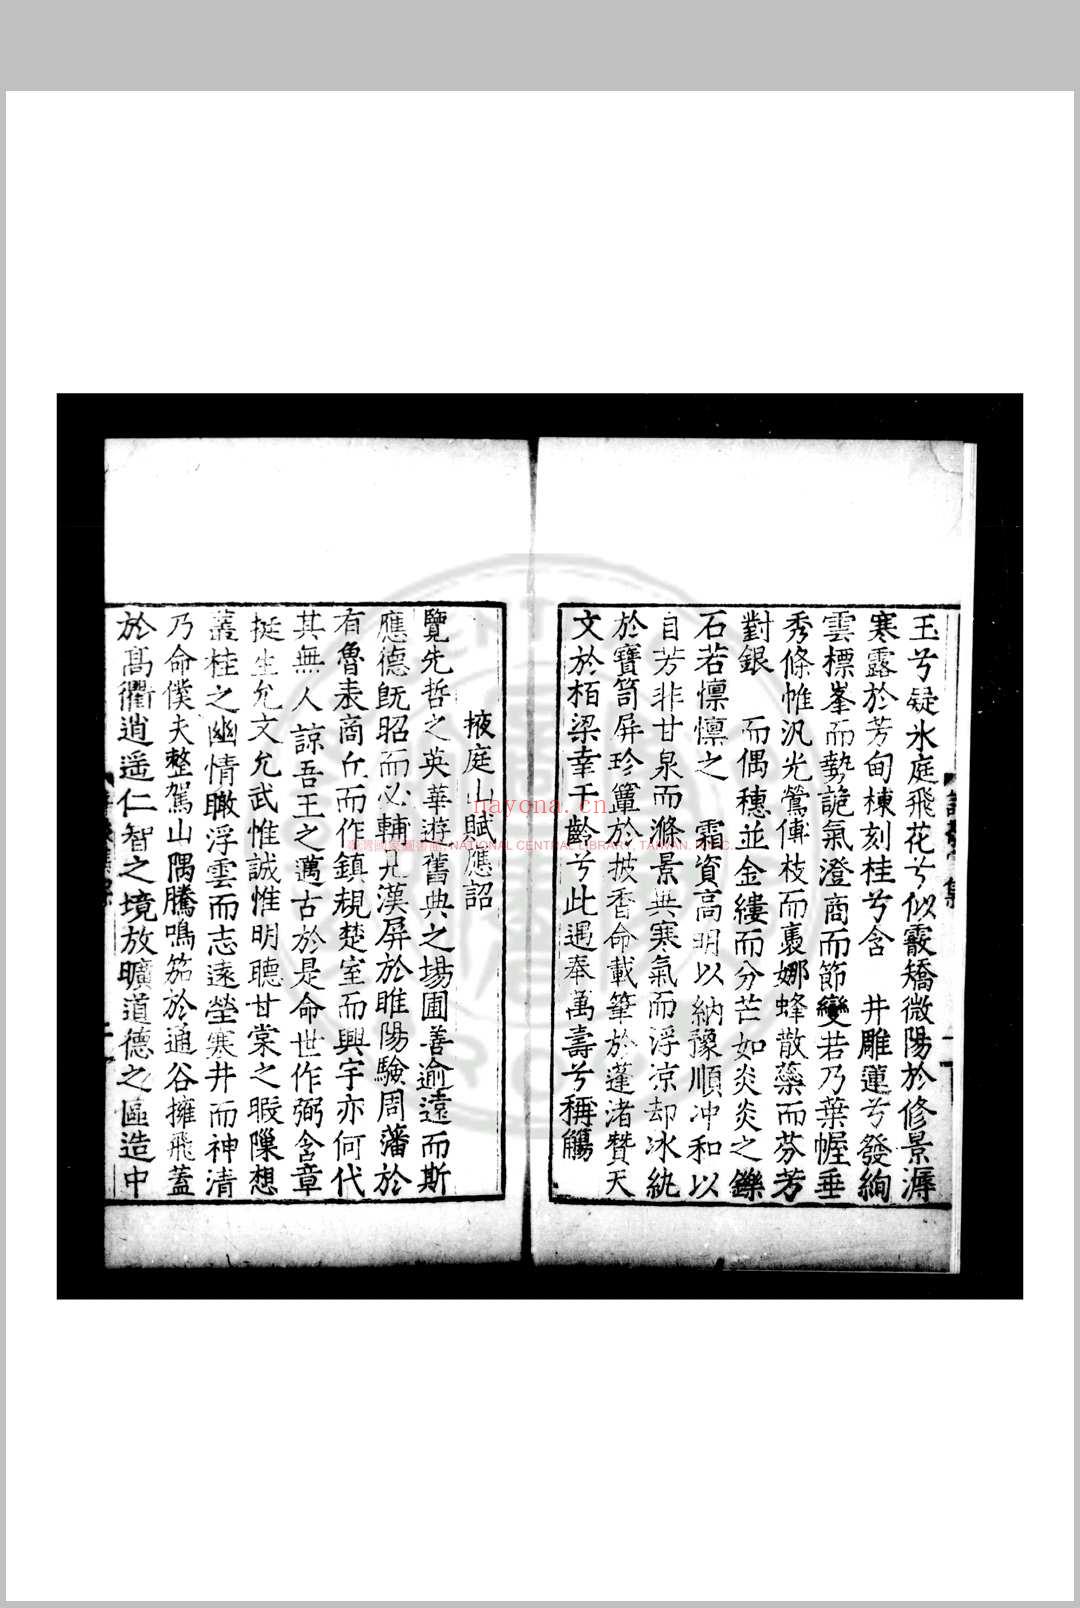 玉兮凝氷庭飛花兮似霰矯微陽於修景溽
寒露於芳甸棟刻桂兮含 井雕蓮兮發絢
雲標峯而勢詭氣澄商而節變若乃葉幄垂
秀條帷汎光鶯傳枝而裊娜蜂散蘂而芬芳
對銀 而偶穗並金縷而分芒如炎炎之鑠
石若懔懔之 霜資高明以納豫順冲和以
自芳非甘泉而滌景無寒氣而浮凉却冰紈
於寶笥屏珍簟於披香命載筆於蓬渚贊天
文於栢梁幸千齡兮此遇奉萬壽兮稱觴
掖庭山賦應詔
覽先哲之英華遊舊典之場圃善逾遠而斯
應德旣昭而必輔 漢屏於睢陽驗周藩於
有魯表商丘而作鎮規楚室而興宇亦何代
其無人諒吾王之邁古於是命世作弼含章
挺生允文允武惟誠惟明聽甘棠之暇隟想
叢桂之幽情瞰浮雲而志遠瑩寒井而神清
乃命僕夫整駕山隅騰鳴笳於通谷擁飛蓋
於髙衢逍遥仁智之境放曠道德之區造中
nayona.cn
NATIONAL CENTRAL LIBRARY, TAIWAN, R.O.C.